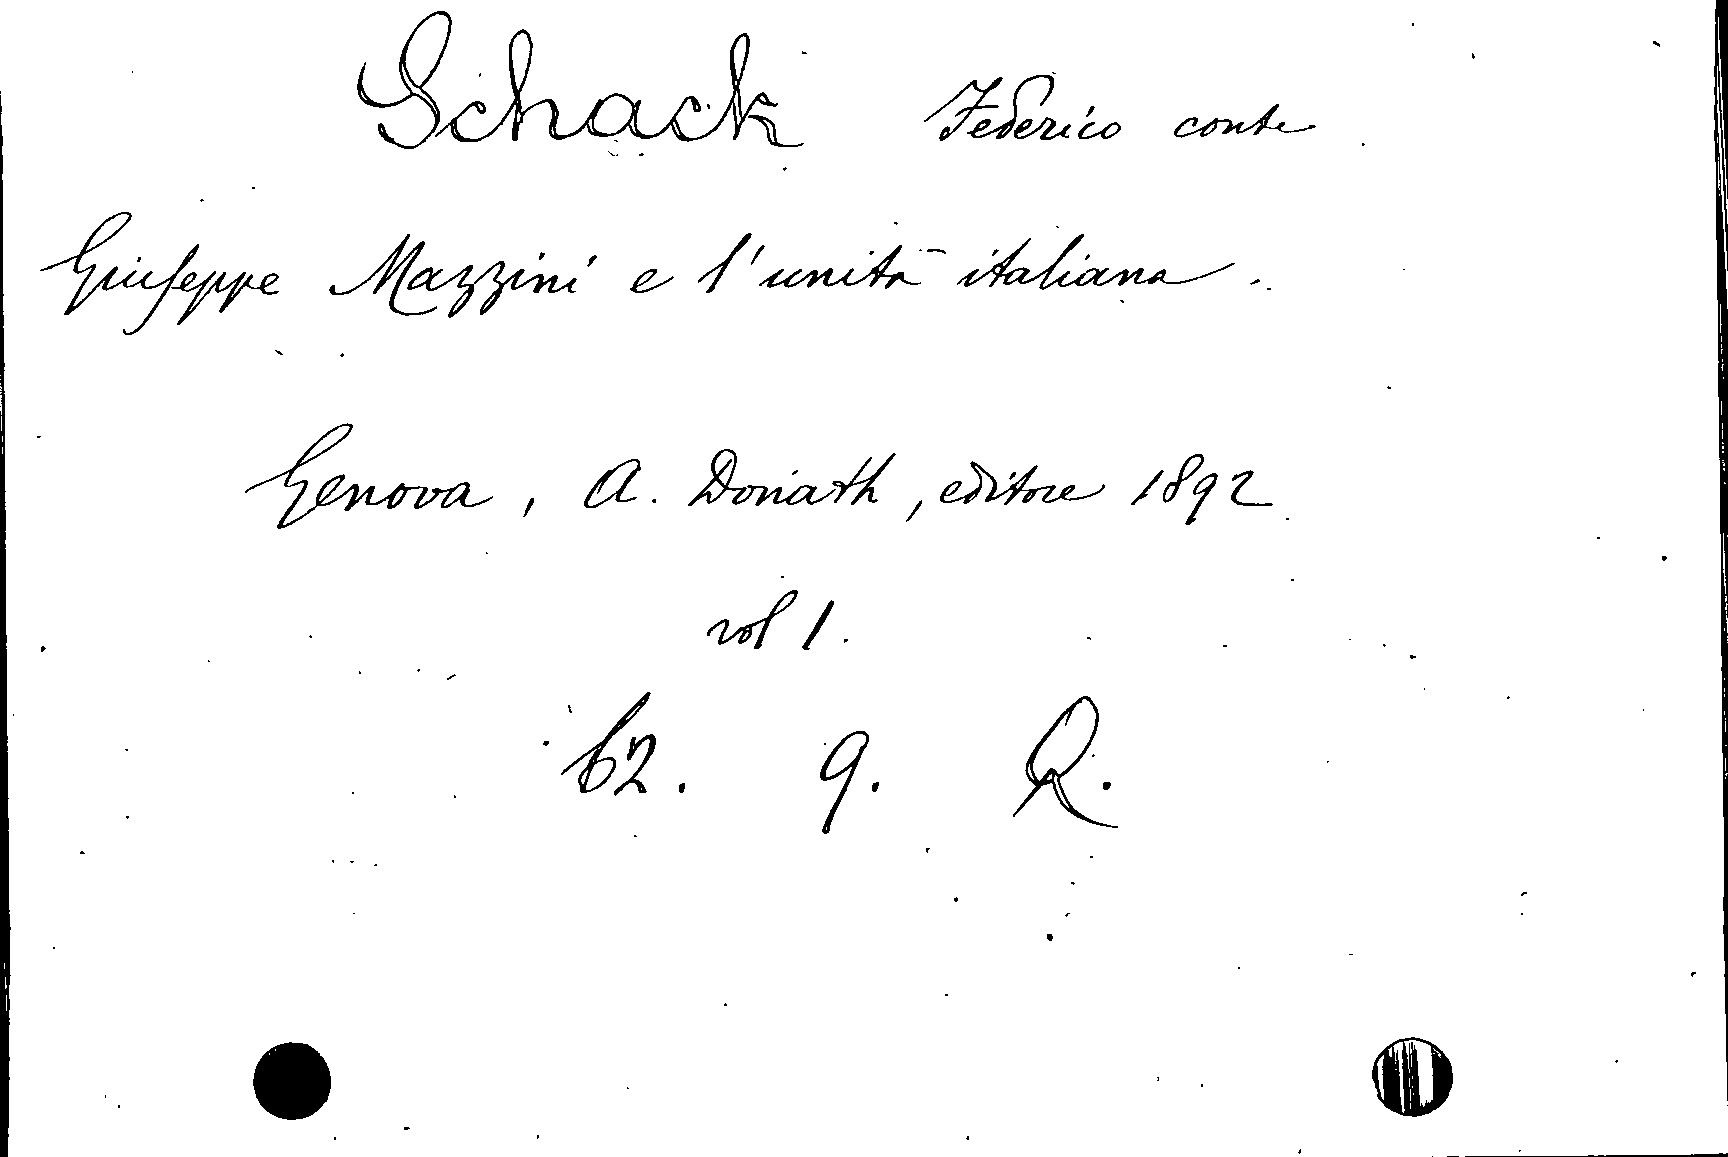 Schack Federico conte
Giuseppe Mazzini e l'unità italiana.
Genova, A. Donath, editore 1892
vol 1.
62. 9. Q.